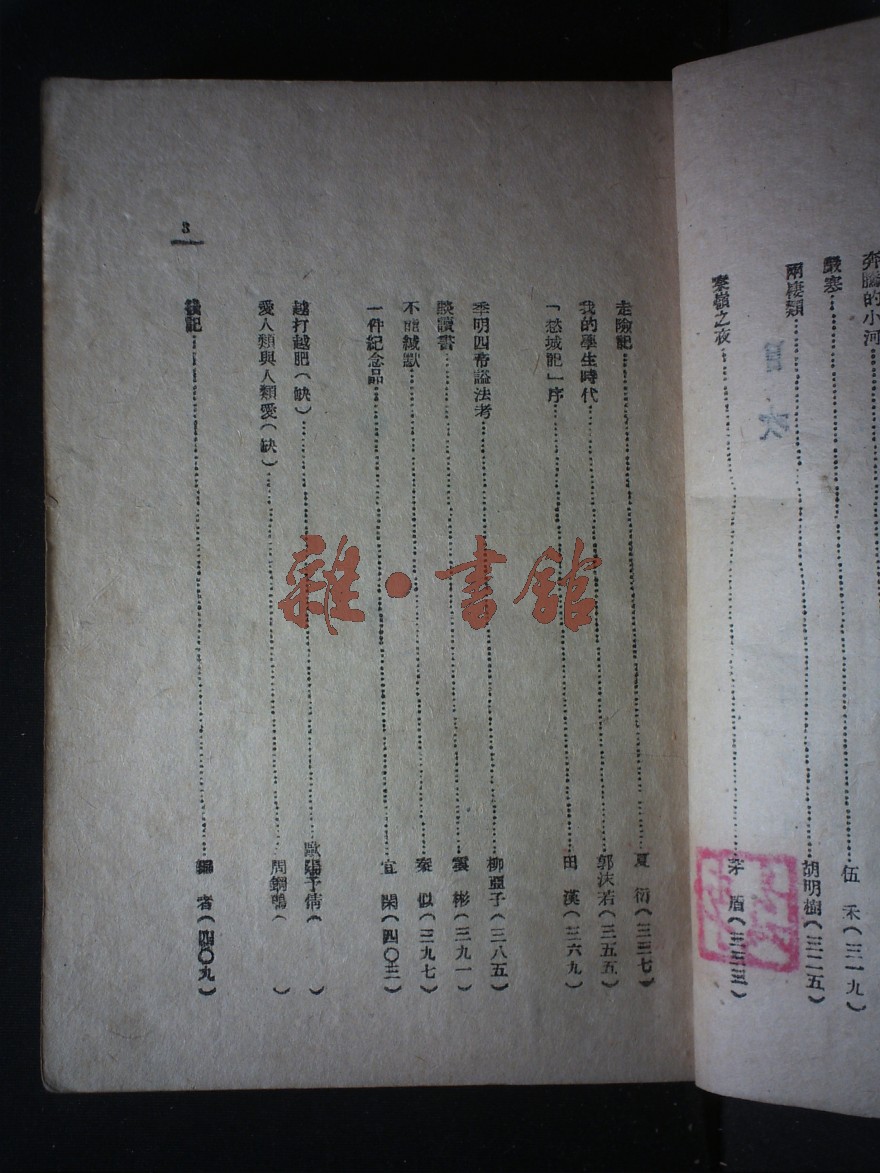 奔騰的小河……伍禾(三一九)
嚴寒……
兩棲類……胡明樹(三二五)
秦嶺之夜……茅盾(三三三)
目次
3
走險記……夏衍(三三七)
我的學生時代……郭沫若(三五五)
「愁城記」序……田漢(三六九)
季明四帝謚法考……柳亞子(三八五)
談讀書……雲彬(三九一)
不能緘默……秦似(三九七)
一件紀念品……宜閑(四〇三)
越打越肥(缺)……歐陽予倩( )
愛人類與人類愛(缺)……周鋼鳴( )
後記……編者(四〇九)
雜·書館